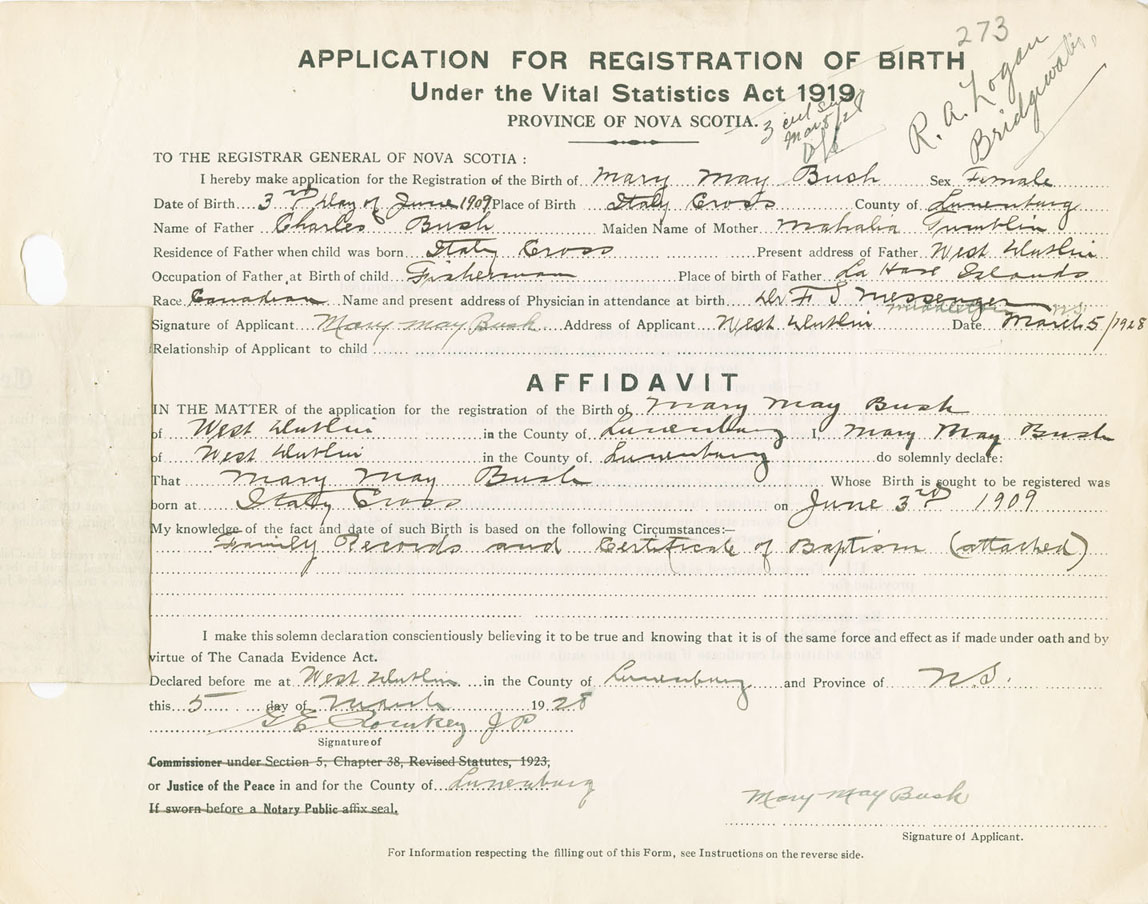 273
APPLICATION FOR REGISTRATION OF BIRTH
Under the Vital Statistics Act 1919
PROVINCE OF NOVA SCOTIA.
R. A. Logan
Bridgewater,
TO THE REGISTRAR GENERAL OF NOVA SCOTIA :
I hereby make application for the Registration of the Birth of Mary May Bush Sex Female
Date of Birth 3rd day of June 1909 Place of Birth Italy Cross County of Lunenburg
Name of Father Charles Bush Maiden Name of Mother Mahalia Tumblin
Residence of Father when child was born Italy Cross Present address of Father West Dublin
Occupation of Father at Birth of child Fisherman Place of birth of Father La Have Islands
Race Canadian Name and present address of Physician in attendance at birth Dr F S Messenger
Middleton N.S.
Signature of Applicant Mary May Bush Address of Applicant West Dublin Date March 5/1928
Relationship of Applicant to child
AFFIDAVIT
IN THE MATTER of the application for the registration of the Birth of Mary May Bush
of West Dublin in the County of Lunenburg I, Mary May Bush
of West Dublin in the County of Lunenburg do solemnly declare:
That Mary May Bush Whose Birth is sought to be registered was
born at Italy Cross on June 3rd 1909
My knowledge of the fact and date of such Birth is based on the following Circumstances:—
Family Records and Certificate of Baptism (attached)
I make this solemn declaration conscientiously believing it to be true and knowing that it is of the same force and effect as if made under oath and by
virtue of The Canada Evidence Act.
Declared before me at West Dublin in the County of Lunenburg and Province of N.S.
this 5 day of March 1928
G E Romkey J P
Signature of
Commissioner under Section 5, Chapter 38, Revised Statutes, 1923,
or Justice of the Peace in and for the County of Lunenburg
If sworn before a Notary Public affix seal.
Mary May Bush
Signature of Applicant.
For Information respecting the filling out of this Form, see Instructions on the reverse side.